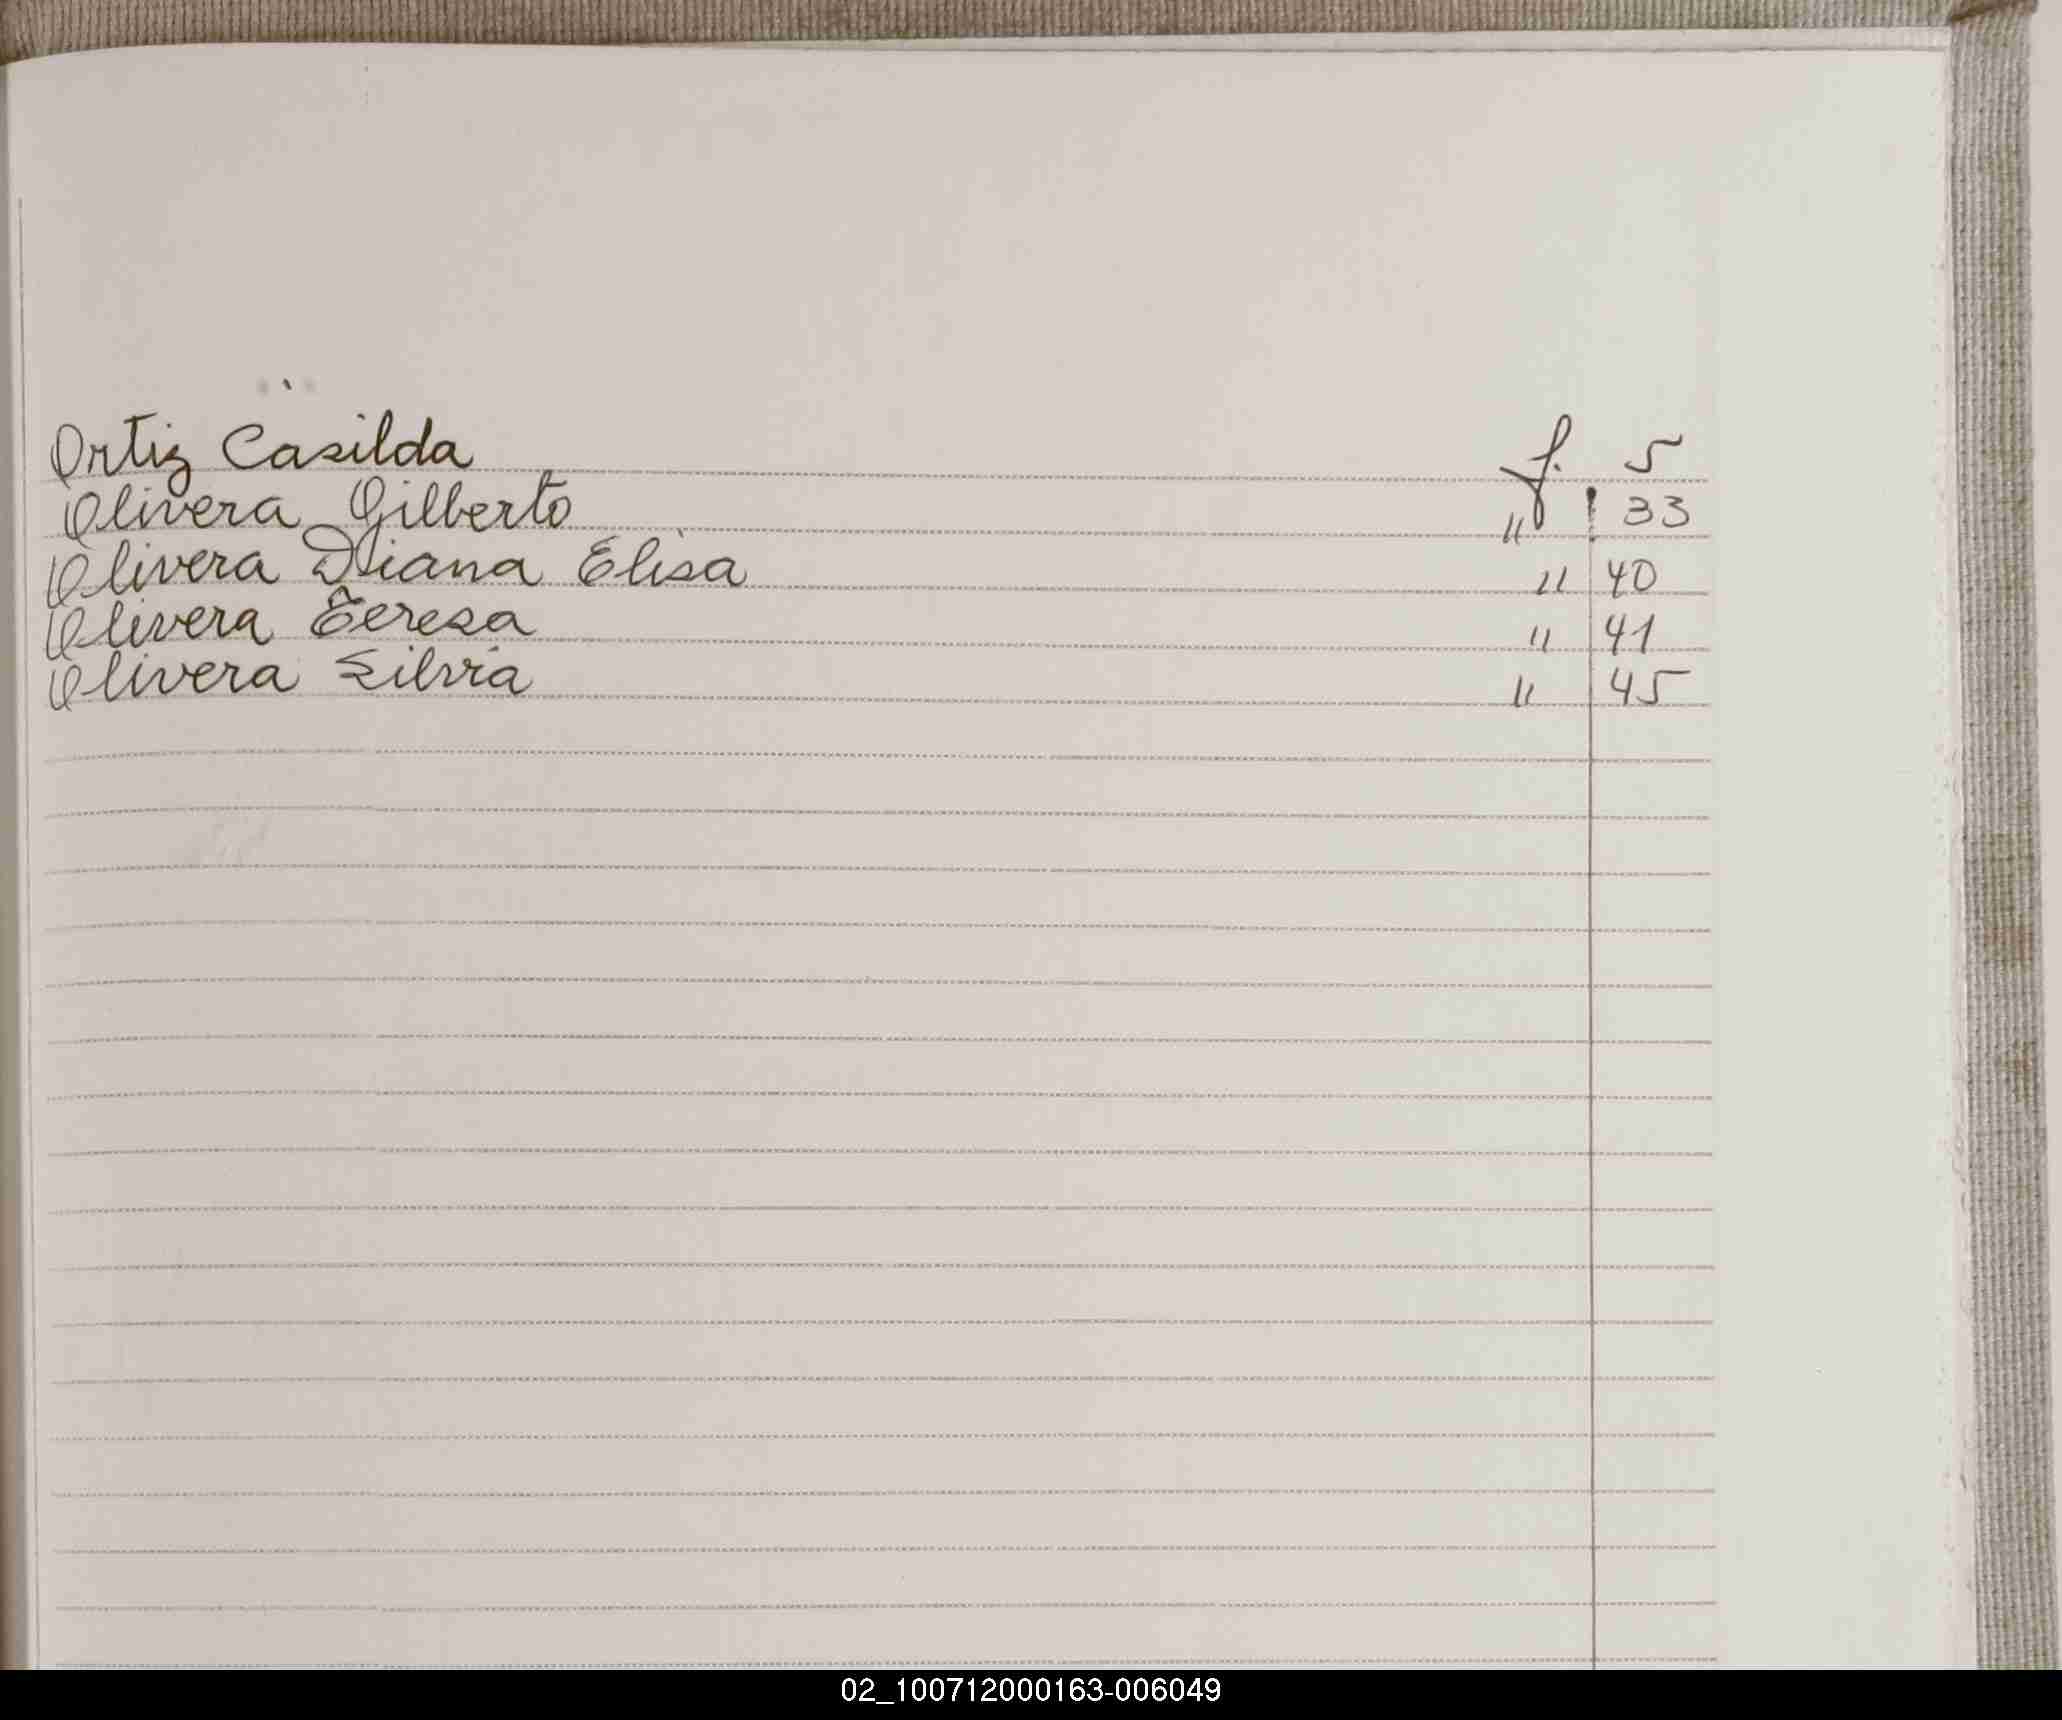 Ortiz Casilda f. 5
Olivera Gilberto " 33
Olivera Diana Elisa " 40
Olivera Teresa " 41
Olivera Silvia " 45
02_100712000163-006049